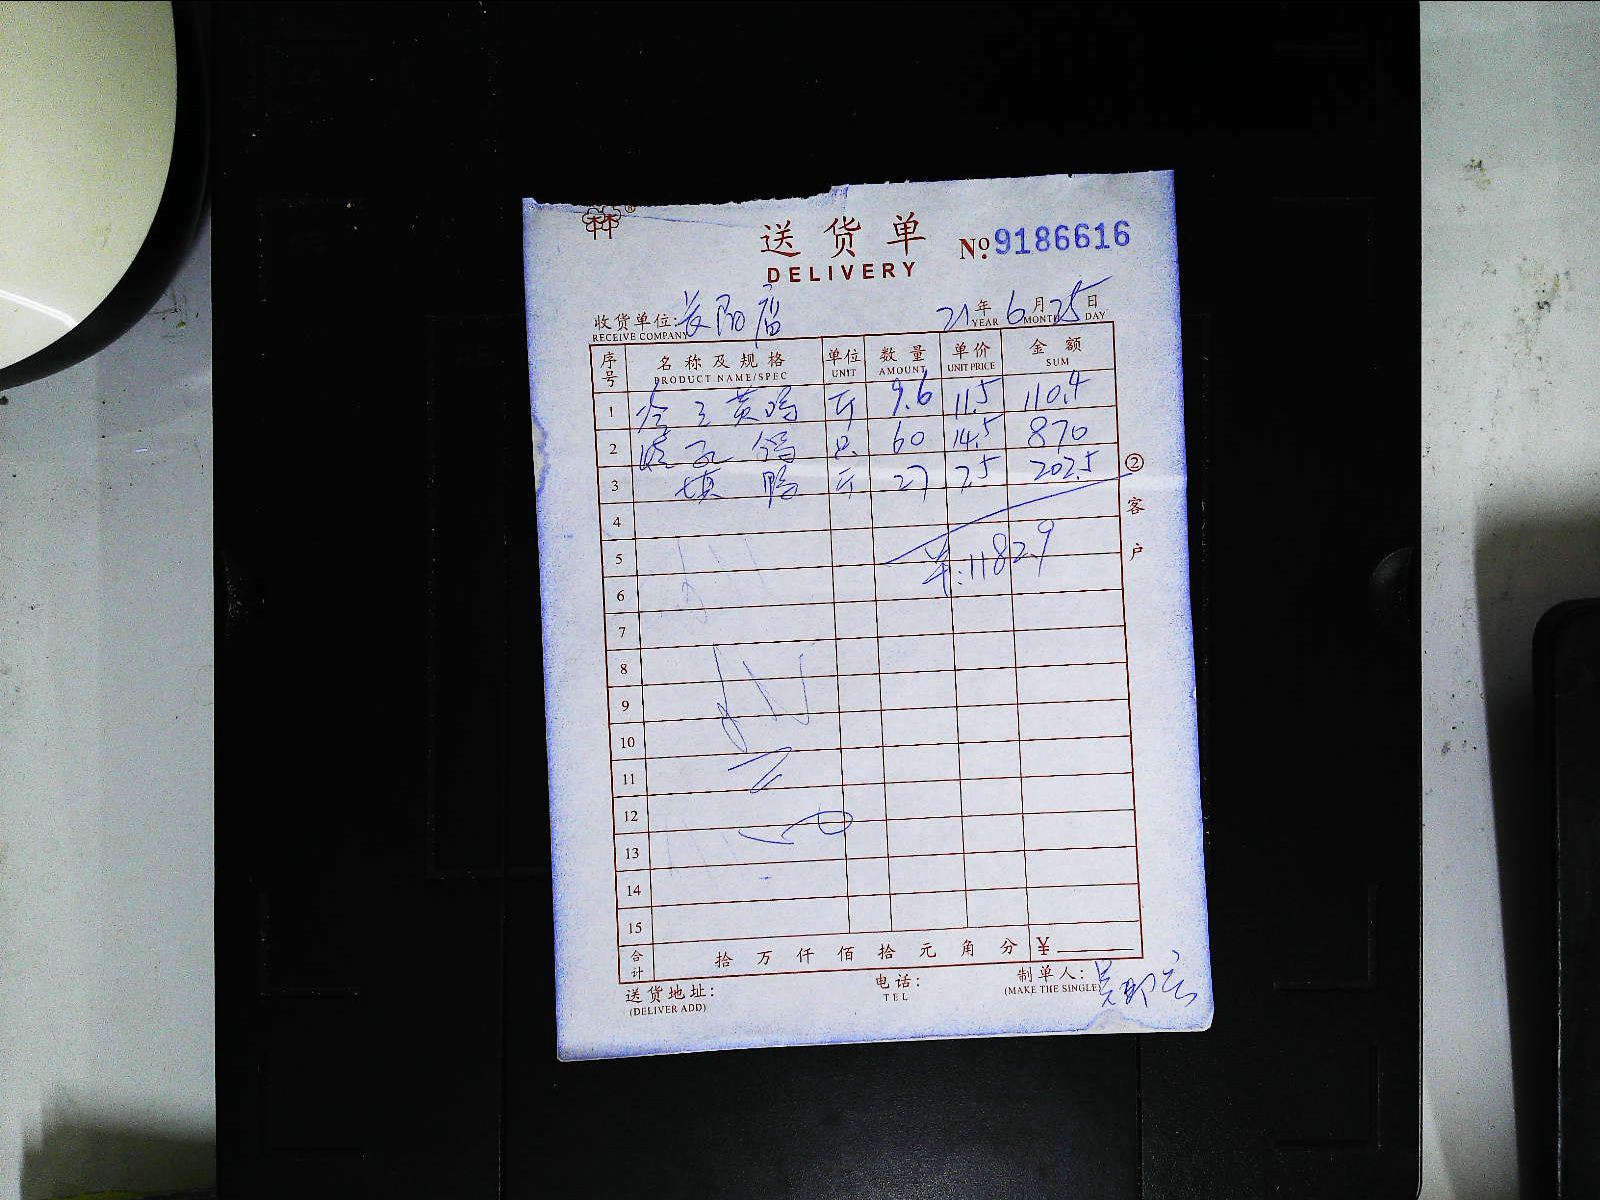 送货单
DELIVERY
No. 9186616
收货单位: 长阳店 21年 6月 25日
RECEIVE COMPANY YEAR MONTH DAY
序号 名称及规格 单位 数量 单价 金额
PRODUCT NAME/SPEC UNIT AMOUNT UNIT PRICE SUM
1 黄鸡 斤 9.6 11.5 110.4
2 鸽 只 60 14.5 870
3 填鸭 斤 27 7.5 202.5
4
5 1182.9
6
7
8
9
10
11
12
13
14
15
合计 拾 万 仟 佰 拾 元 角 分 ¥
②客户
送货地址: 电话: 制单人:
(DELIVER ADD) TEL (MAKE THE SINGLE)